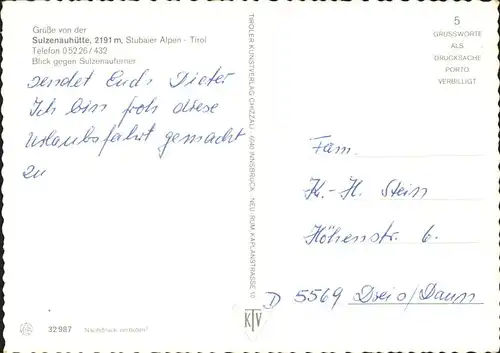 Grüße von der
Sulzenauhütte, 2191 m, Stubaier Alpen - Tirol
Telefon 0 52 26 / 432
Blick gegen Sulzenauferner
sendet Euch Dieter
Ich bin froh diese
Urlaubsfahrt gemacht
zu
32987 Nachdruck verboten!
TIROLER KUNSTVERLAG CHIZZALI, 6040 INNSBRUCK, NEU-RUM, KAPLANSTRASSE 10
KTV
5
GRUSSWORTE
ALS
DRUCKSACHE
PORTO
VERBILLIGT
Fam.
K.-H. Stein
Höhenstr. 6.
D 5569 Dreis/Daun